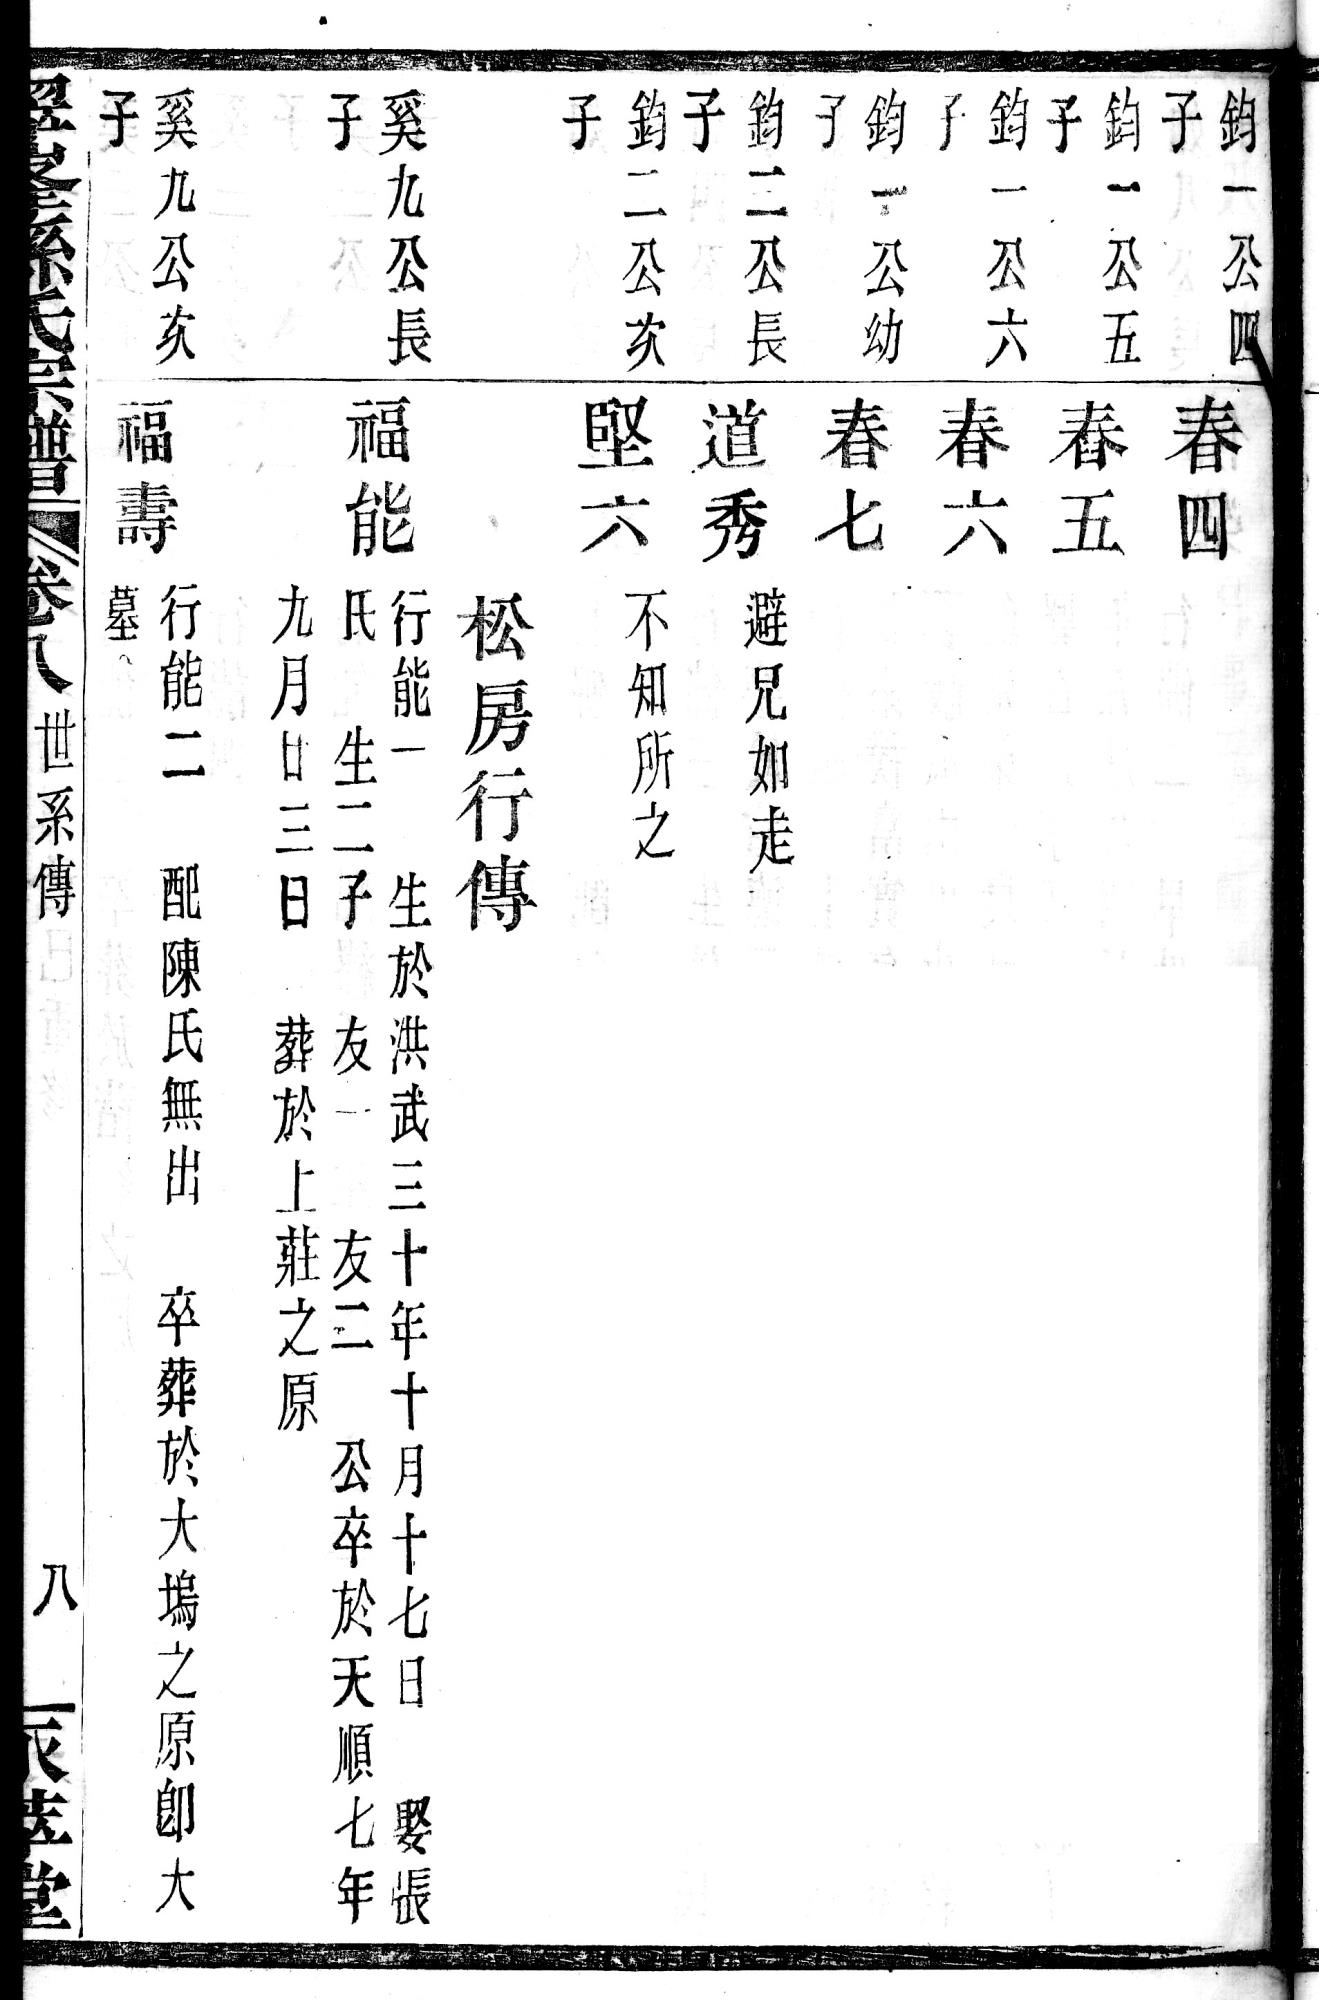 鈞一公四
子
春四
鈞一公五
子
春五
鈞一公六
子
春六
鈞一公幼
子
春七
鈞二公長
子
道秀
避兄如走
鈞二公次
子
堅六
不知所之
松房行傳
奚九公長
子
福能
行能一　生於洪武三十年十月十七日　娶張
氏　生二子　友一　友二　公卒於天順七年
九月廿三日　葬於上莊之原
奚九公次
子
福壽
行能二　配陳氏無出　卒葬於大塢之原卽大
墓
孫氏宗譜　卷八　世系傳　八　堂